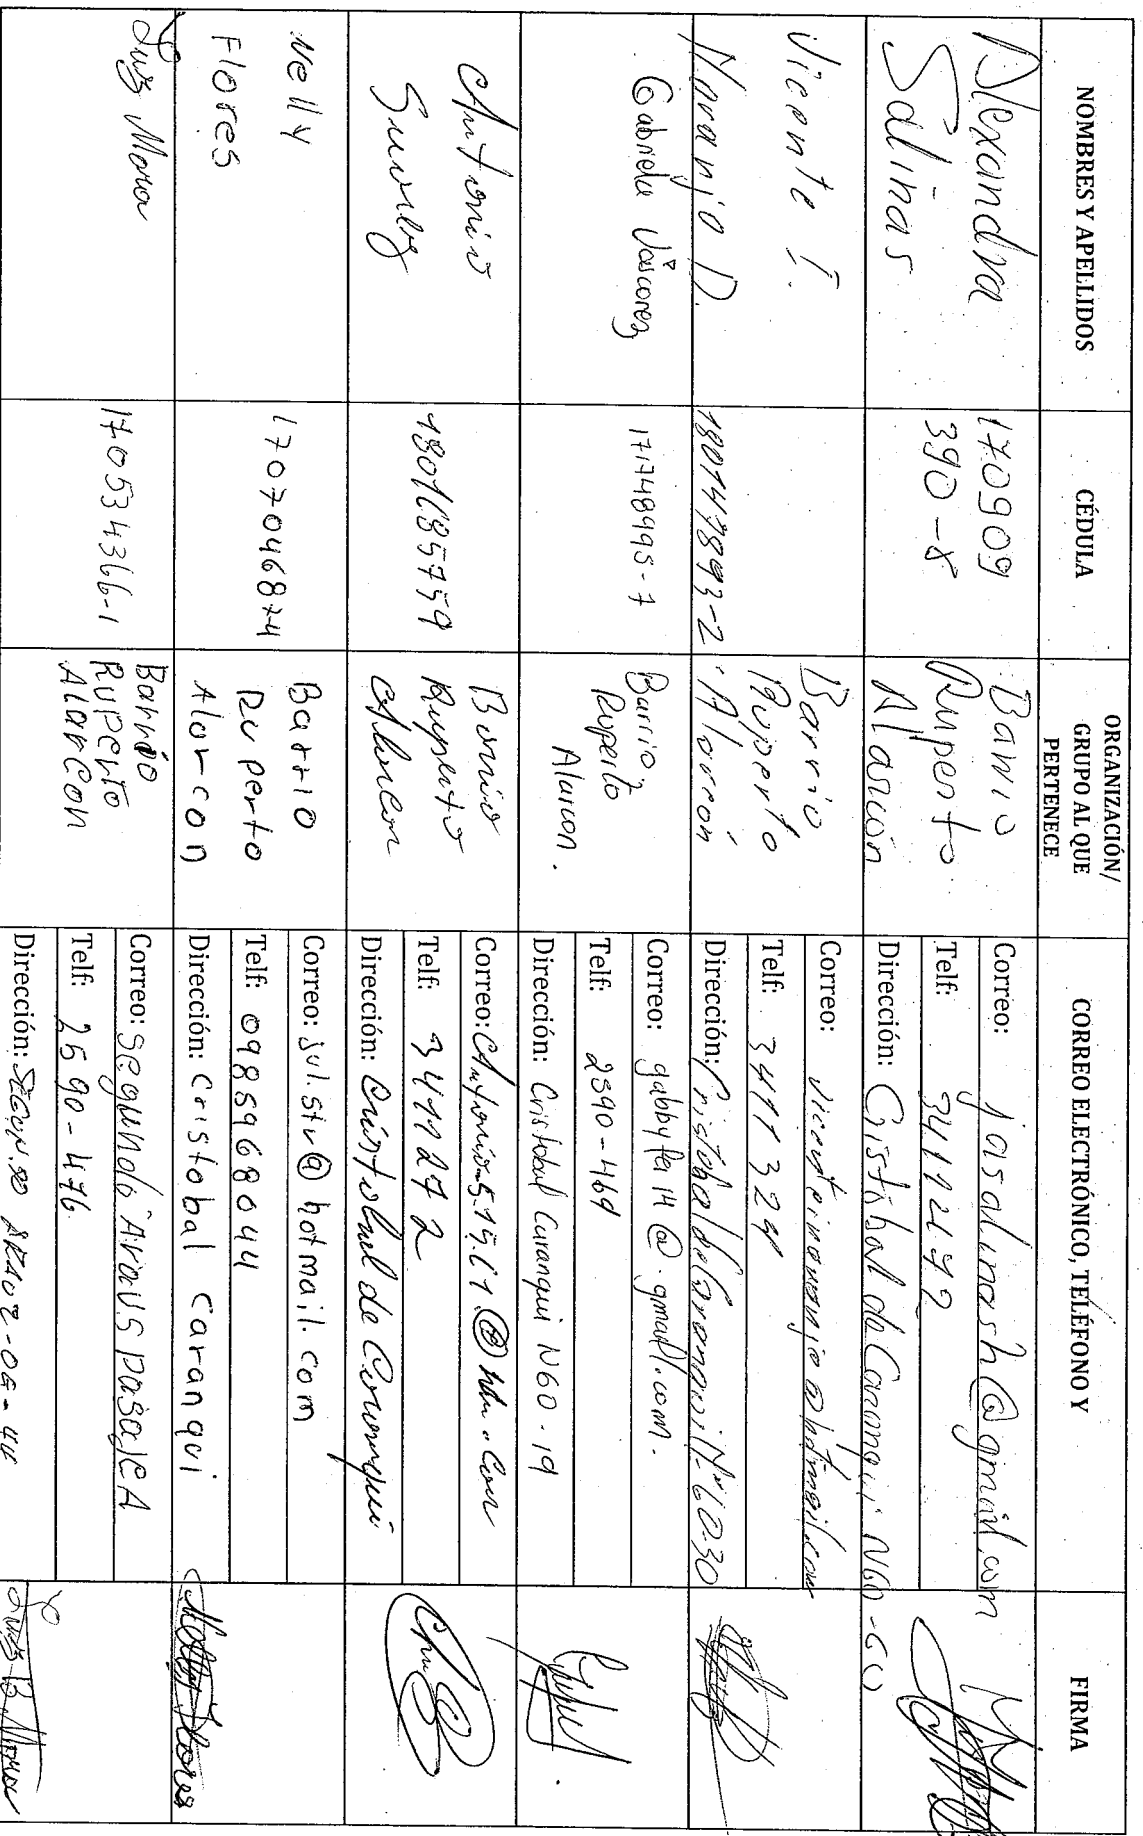 NOMBRES Y APELLIDOS
CÉDULA
ORGANIZACIÓN/
GRUPO AL QUE
PERTENECE
CORREO ELECTRÓNICO, TELÉFONO Y
FIRMA
Alexandra
Salinas
170909
390-8
Barrio
Ruperto
Alarcón
Correo: jasalinash@gmail.com
Telf: 3411272
Dirección: Cristobal de Caranqui N60-60
Vicente I.
Naranjo D.
180147893-2
Barrio
Ruperto
Alarcón
Correo: vicenteinaranjo@hotmail.com
Telf: 3411329
Dirección: Cristobal de Caranqui Nº 60-30
Gabriela Vàscorez
171748995-7
Barrio
Ruperto
Alarcon.
Correo: gabbyfer14@gmail.com.
Telf: 2590-469
Dirección: Cristobal Caranqui N60-19
Antonio
Suarez
1801685759
Barrio
Ruperto
Alarcon
Correo:
Telf: 3411272
Dirección: Cristobal de Caranqui
Nelly
Flores
1707046874
Barrio
Ruperto
Alarcon
Correo: jul.stv@hotmail.com
Telf: 0985968044
Dirección: Cristobal Caranqui
Nelly Flores
Luz Mora
170534366-1
Barrio
Ruperto
Alarcon
Correo: Segundo Araus pasaje A
Telf: 2590-476
Dirección: Segundo Araoz - 06-44
Luz B. Mora